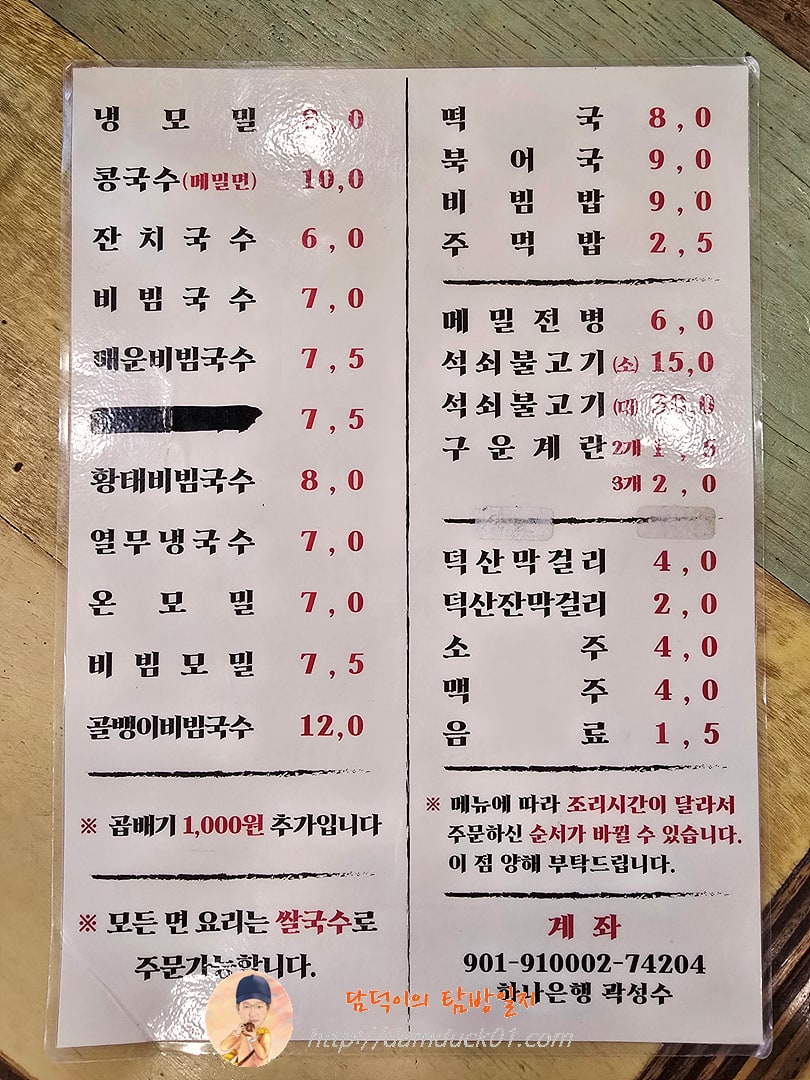 냉 모 밀
콩국수(메밀면) 10,0
잔치국수 6,0
비빔국수 7,0
매운비빔국수 7,5
7,5
황태비빔국수 8,0
열무냉국수 7,0
온 모 밀 7,0
비빔모밀 7,5
골뱅이비빔국수 12,0
※ 곱배기 1,000원 추가입니다
※ 모든 면 요리는 쌀국수로
주문가능합니다.
떡 국 8,0
북 어 국 9,0
비 빔 밥 9,0
주 먹 밥 2,5
메밀전병 6,0
석쇠불고기 (소) 15,0
석쇠불고기 (대) 30,0
구운계란 2개 1,5
3개 2,0
덕산막걸리 4,0
덕산잔막걸리 2,0
소 주 4,0
맥 주 4,0
음 료 1,5
※ 메뉴에 따라 조리시간이 달라서
주문하신 순서가 바뀔 수 있습니다.
이 점 양해 부탁드립니다.
계 좌
901-910002-74204
하나은행 곽성수
담덕이의 탐방일지
http://damduck01.com